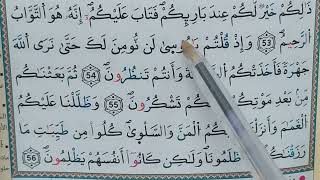 ذَٰلِكُمْ خَيْرٌ لَّكُمْ عِندَ بَارِئِكُمْ فَتَابَ عَلَيْكُمْ إِنَّهُ هُوَ التَّوَّابُ
الرَّحِيمُ 53 وَإِذْ قُلْتُمْ يَٰمُوسَىٰ لَن نُّومِنَ لَكَ حَتَّىٰ نَرَى اللَّهَ
جَهْرَةً فَأَخَذَتْكُمُ وَأَنتُمْ تَنظُرُونَ 54 ثُمَّ بَعَثْنَٰكُم
مِّن بَعْدِ مَوْتِكُمْ تَشْكُرُونَ 55 وَظَلَّلْنَا عَلَيْكُمُ
الْغَمَٰمَ وَأَنزَلْنَا عَلَيْكُمُ الْمَنَّ وَالسَّلْوَىٰ كُلُوا مِن طَيِّبَٰتِ مَا
رَزَقْنَٰكُمْ ظَلَمُونَا وَلَٰكِن كَانُوا أَنفُسَهُمْ يَظْلِمُونَ 56